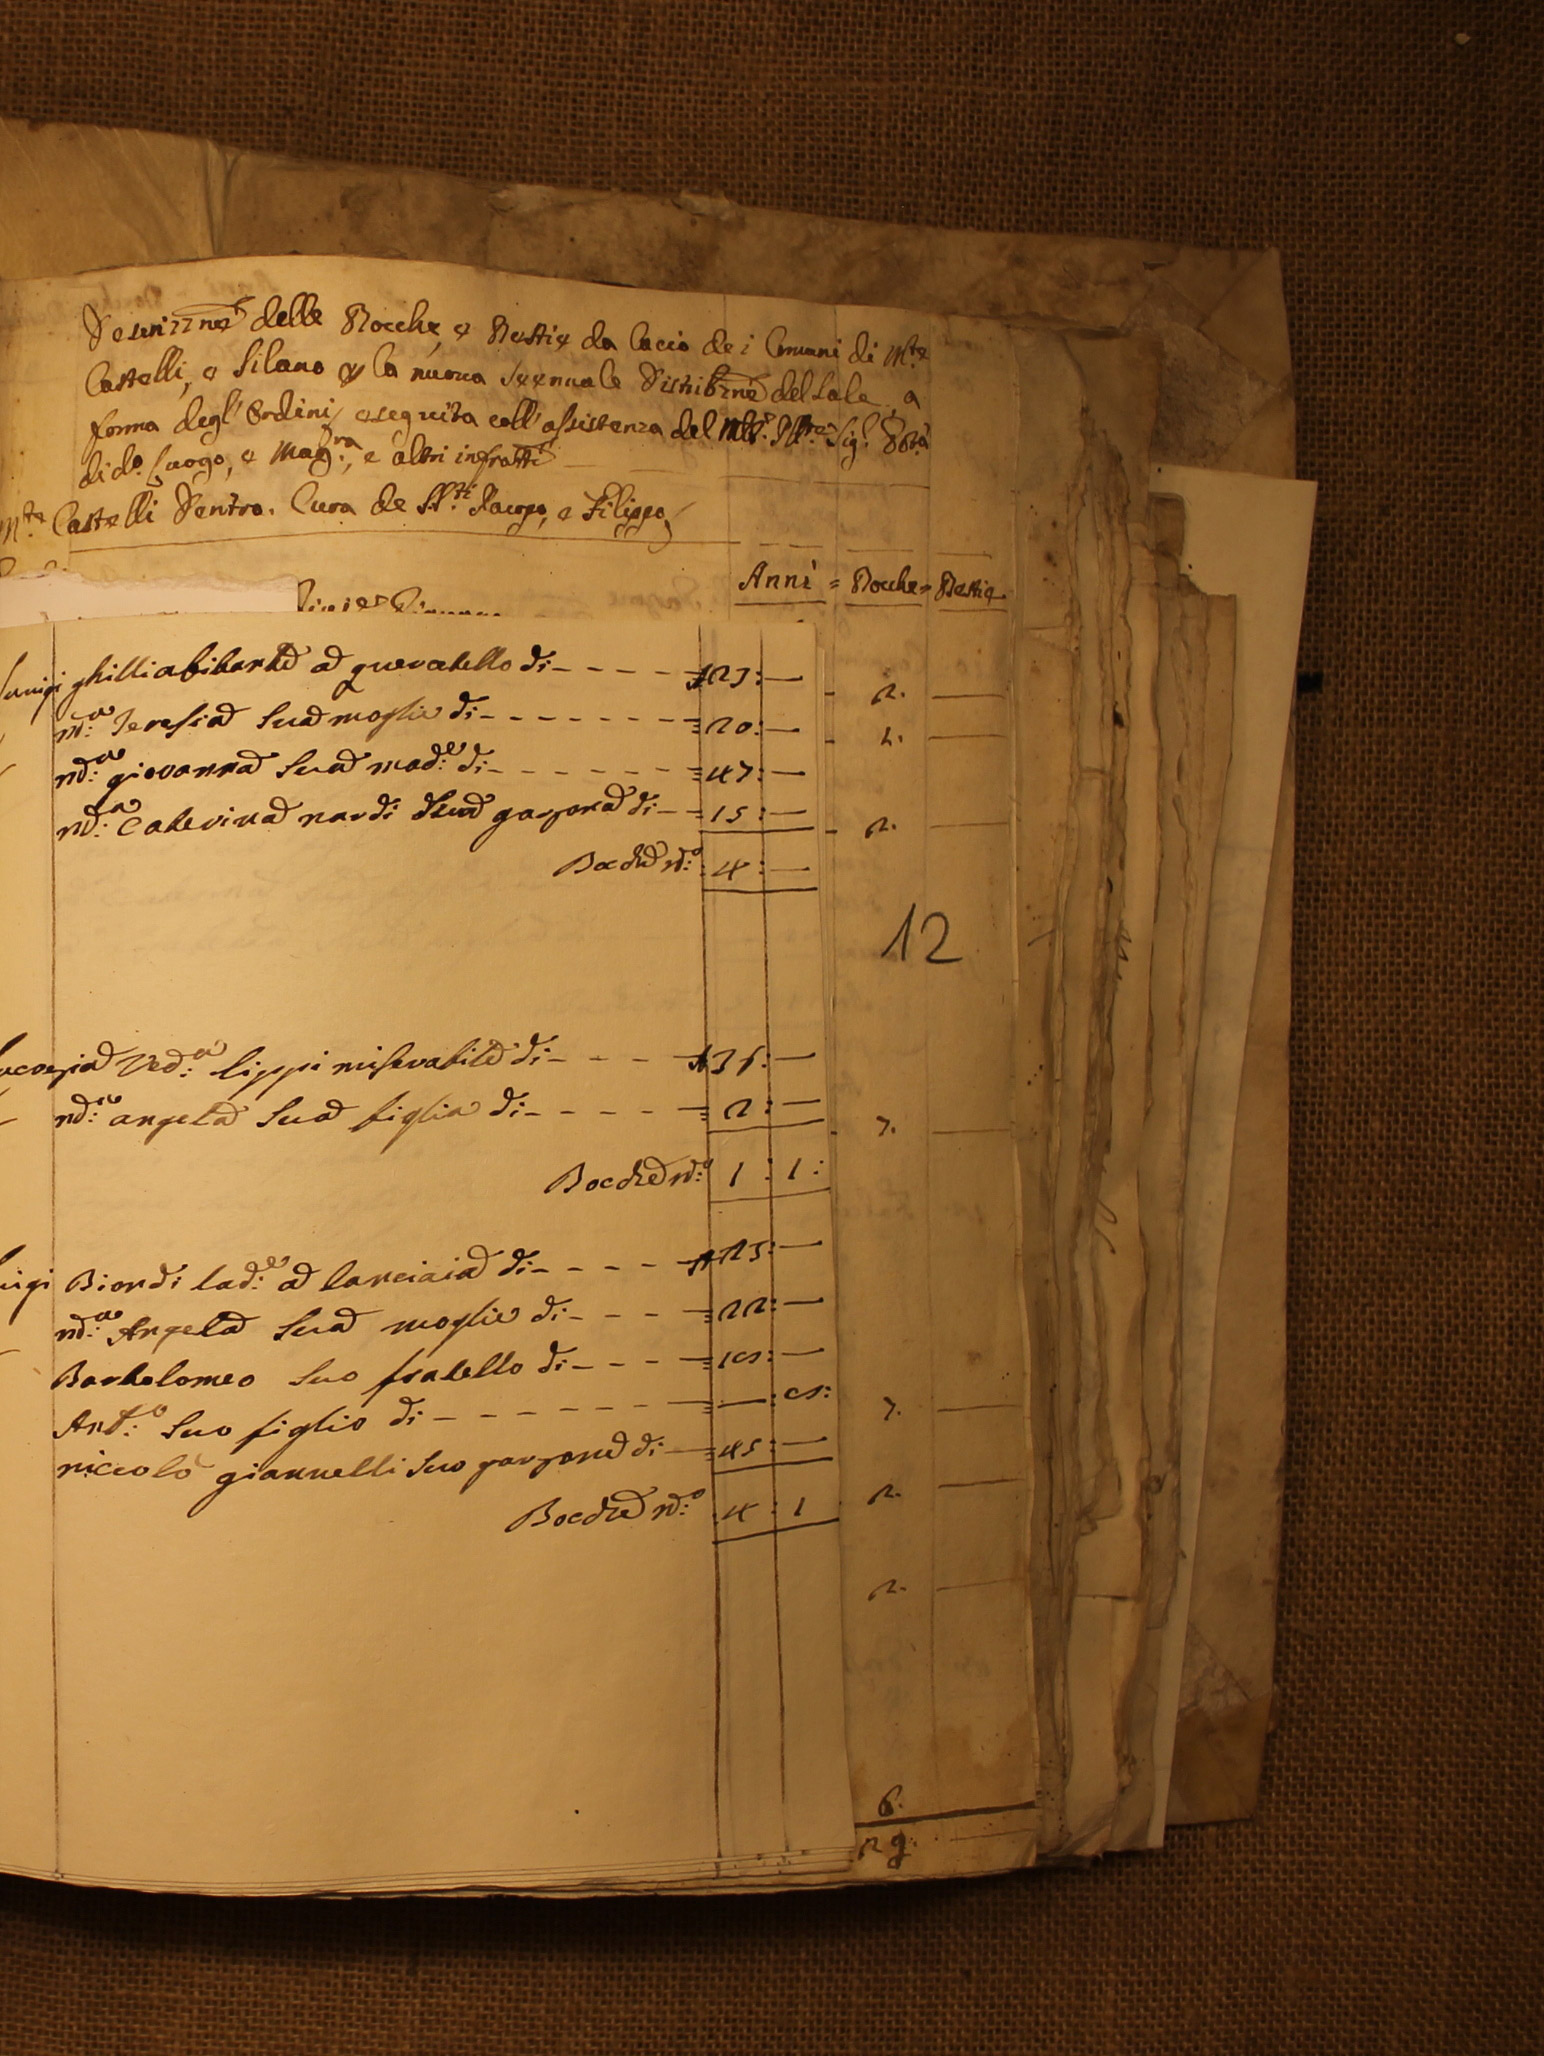 Descrizzne delle Bocche, e Bestie da Cacio dei Comuni di Mte
Castelli, e Silano p la nuova Seennale Distribzne del Sale a
forma degl' Ordini, eseguita coll' assistenza del Sig.
di do. Luogo, e altri infratti
Mte Castelli Dentro. Cura de SS.ti Jacopo, e Filippo
Anni = Bocche = Bestie
ghilli abitante a quercetello di 23: —
M:a Teresia sua moglie di 20: —
M:a giovanna sua mad:e di 47: —
M:a Caterina nardi sua garzona di 15: —
Bocche N:o 4: —
12
Ved:a lippi miserabile di 36: —
M:a angela sua figlia di 2: —
Bocche N:o 1: 1:
Biondi lad:e a lanciaia di 25: —
M:a Angela sua moglie di 22: —
Bartolomeo suo fratello di
Ant:o suo figlio di
niccolò giannelli suo garzone di 45: —
Bocche N:o 4: 1
2.
2.
2.
7.
7.
2.
2.
6.
29.